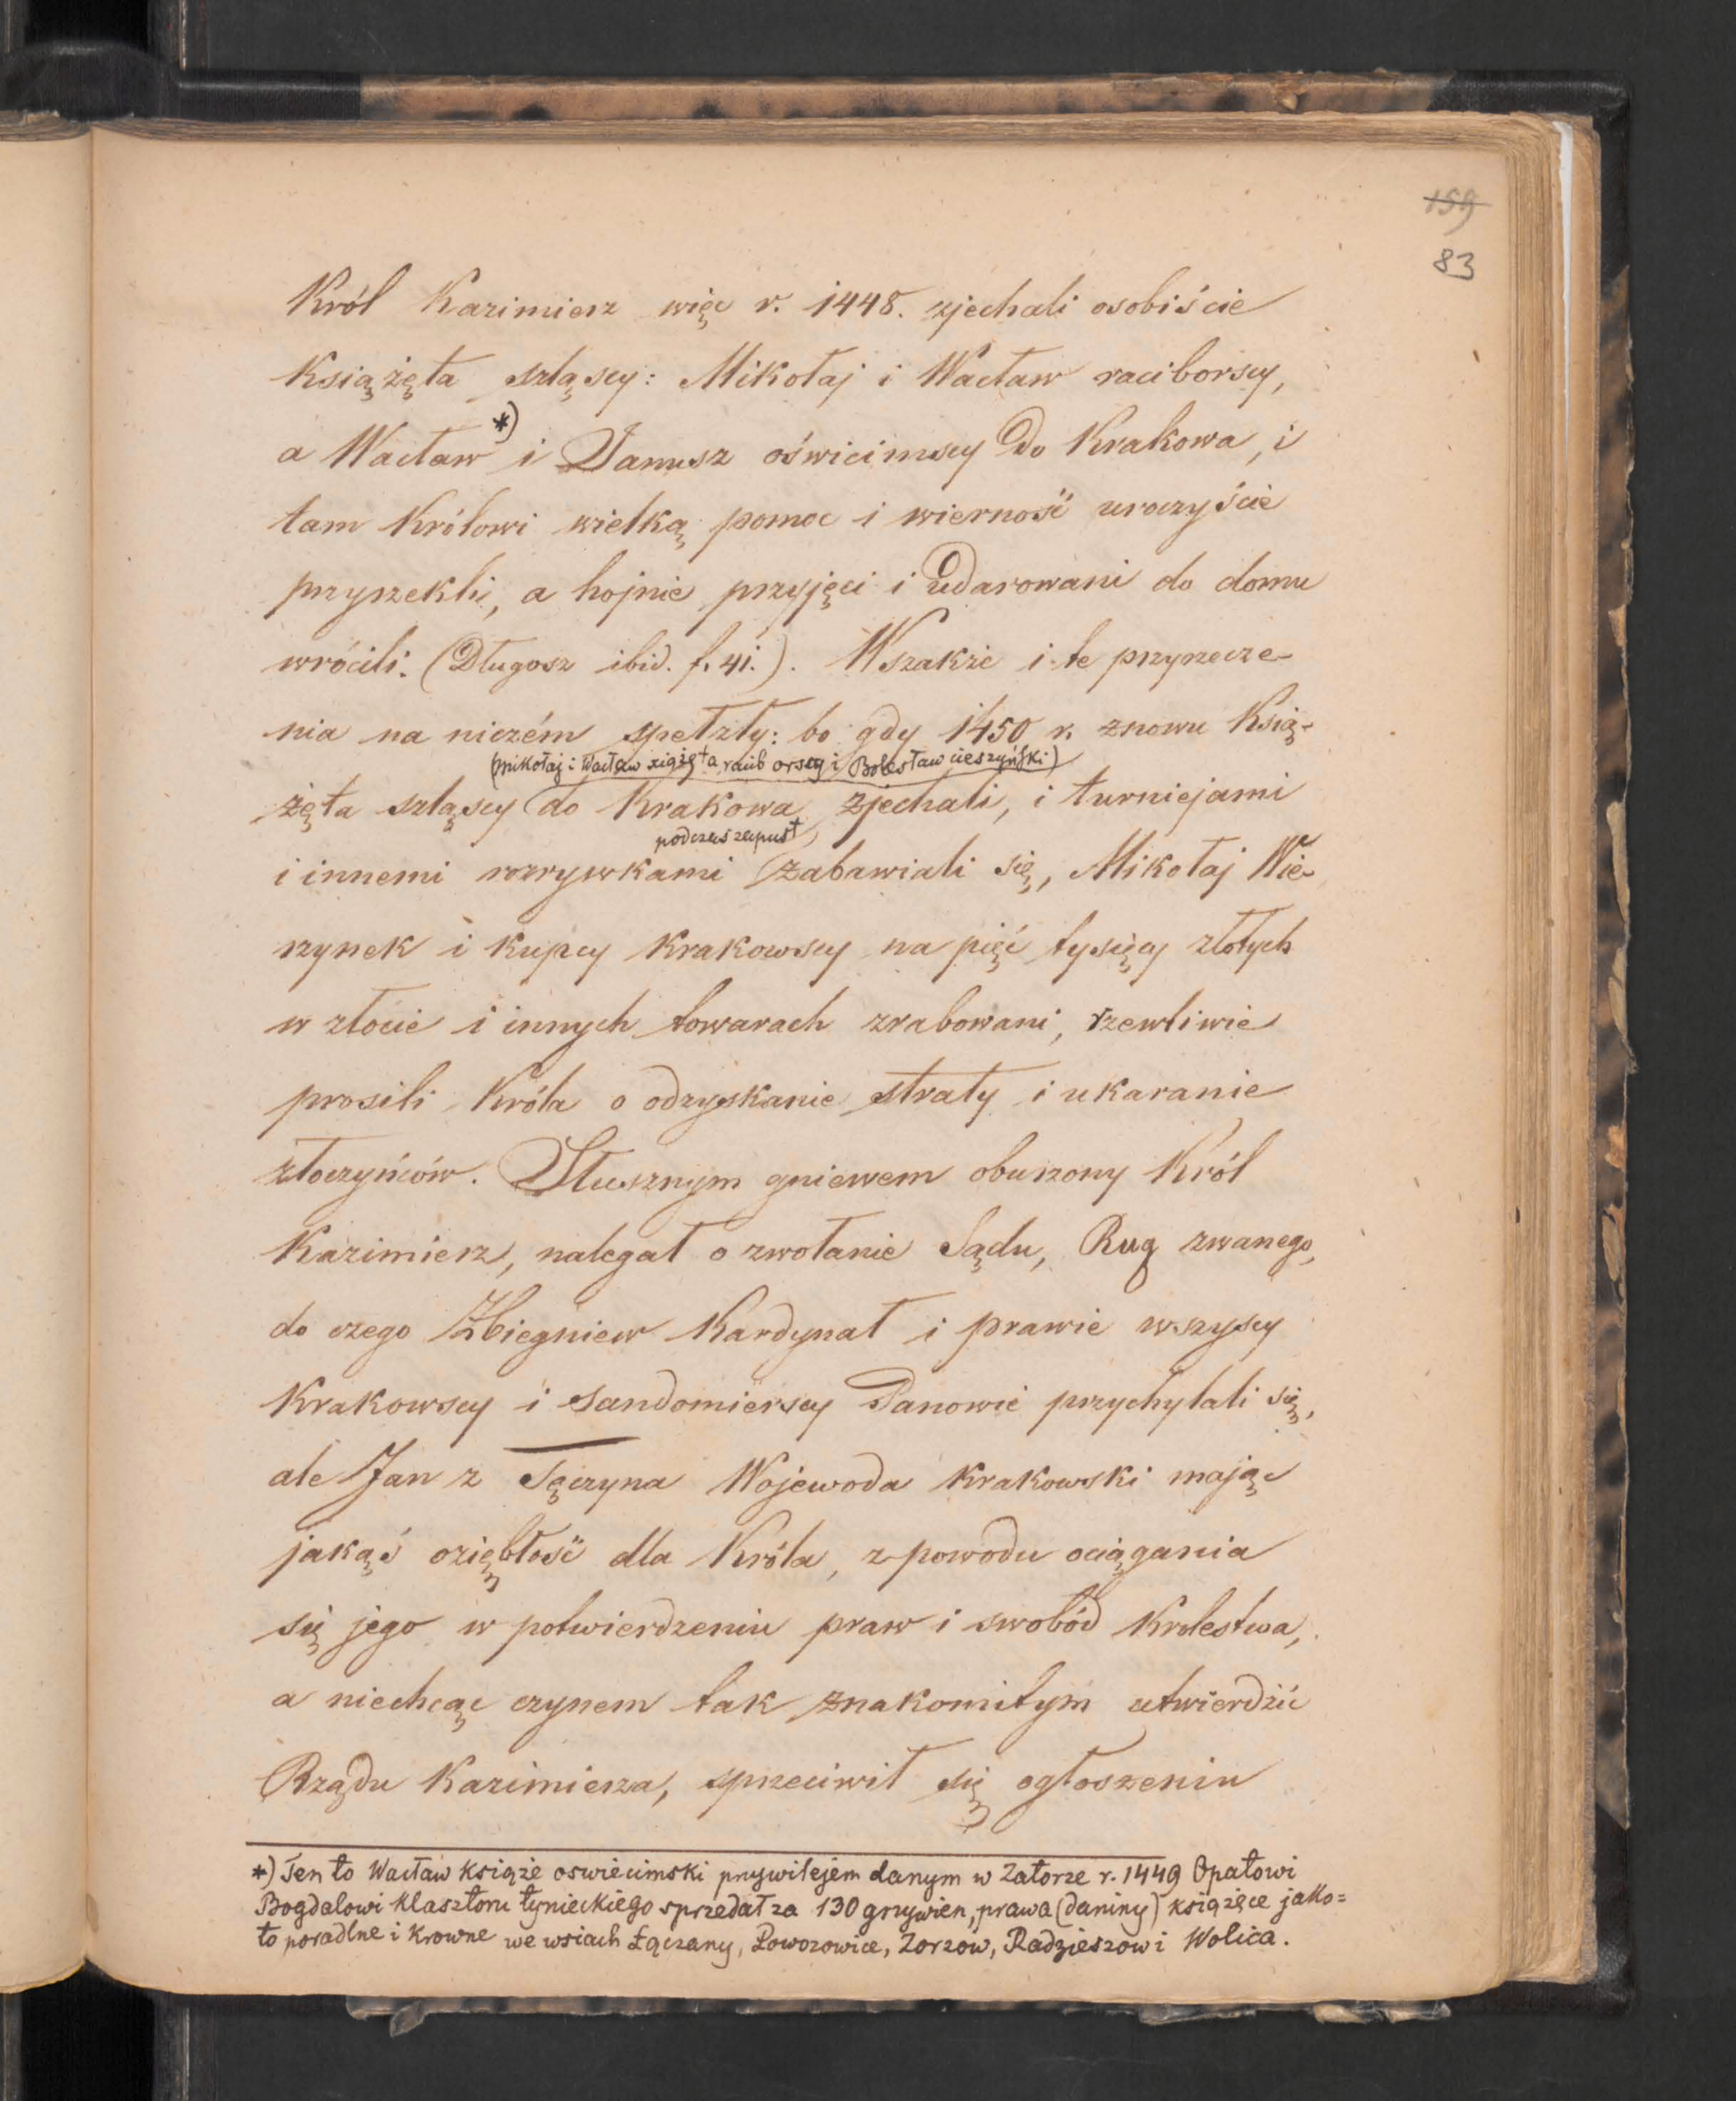 159
83
Król Kazimierz więc r. 1448. zjechali osobiście
Książęta szląscy: Mikołaj i Wacław raciborscy,
a Wacław *) i Janusz oświcimscy do Krakowa, i
tam Królowi wielką pomoc i wierność uroczyście
przyrzekli, a hojnie przyjęci i udarowani do domu
wrócili. (Długosz ibid. f. 41.). Wszakże i te przyrzecze-
nia na niczém spełzły: bo gdy 1450 r. znowu Ksią-
(Mikołaj i Wacław xiążęta raciborscy i Bolesław cieszyński)
żęta szląscy do Krakowa zjechali, i turniejami
podczas zapust
i innemi rozrywkami zabawiali się, Mikołaj Wie-
rzynek i kupcy Krakowscy na pięć tysięcy złotych
w złocie i innych towarach zrabowani, rzewliwie
prosili Króla o odzyskanie straty i ukaranie
złoczyńców. Słusznym gniewem oburzony Król
Kazimierz, nalegał o zwołanie Sądu, Rug zwanego,
do czego Zbiegniew Kardynał i prawie wszyscy
Krakowscy i Sandomierscy Panowie przychylali się,
ale Jan z Tęczyna Wojewoda Krakowski mając
jakąś oziębłość dla Króla, z powodu ociągania
się jego w potwierdzeniu praw i swobód Krolestwa,
a niechcąc czynem tak znakomitym utwierdzić
Rządu Kazimierza, sprzeciwił się ogłoszeniu
*) Ten to Wacław książe oswiecimski przywilejem danym w Zatorze r. 1449 Opatowi
Bogdalowi Klasztoru tynieckiego sprzedał za 130 grzywien, prawa (daniny) książęce jako=
to poradlne i Krowne we wsiach Łączany, Powozowice, Zorzow, Radzieszow i Wolica.